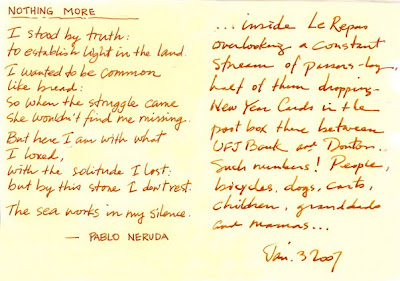 NOTHING MORE
I stood by truth:
to establish light in the land.
I wanted to be common
like bread:
so when the struggle came
she wouldn't find me missing.
But here I am with what
I loved,
with the solitude I lost:
but by this stone I don't rest.
The sea works in my silence.
— PABLO NERUDA
...inside Le Repas
overlooking a constant
stream of passers-by,
half of them dropping
New Year Cards in the
post box there between
UFJ Bank and Doutor..
Such numbers! People,
bicycles, dogs, carts,
children, granddads
and mamas...
Jan. 3 2007